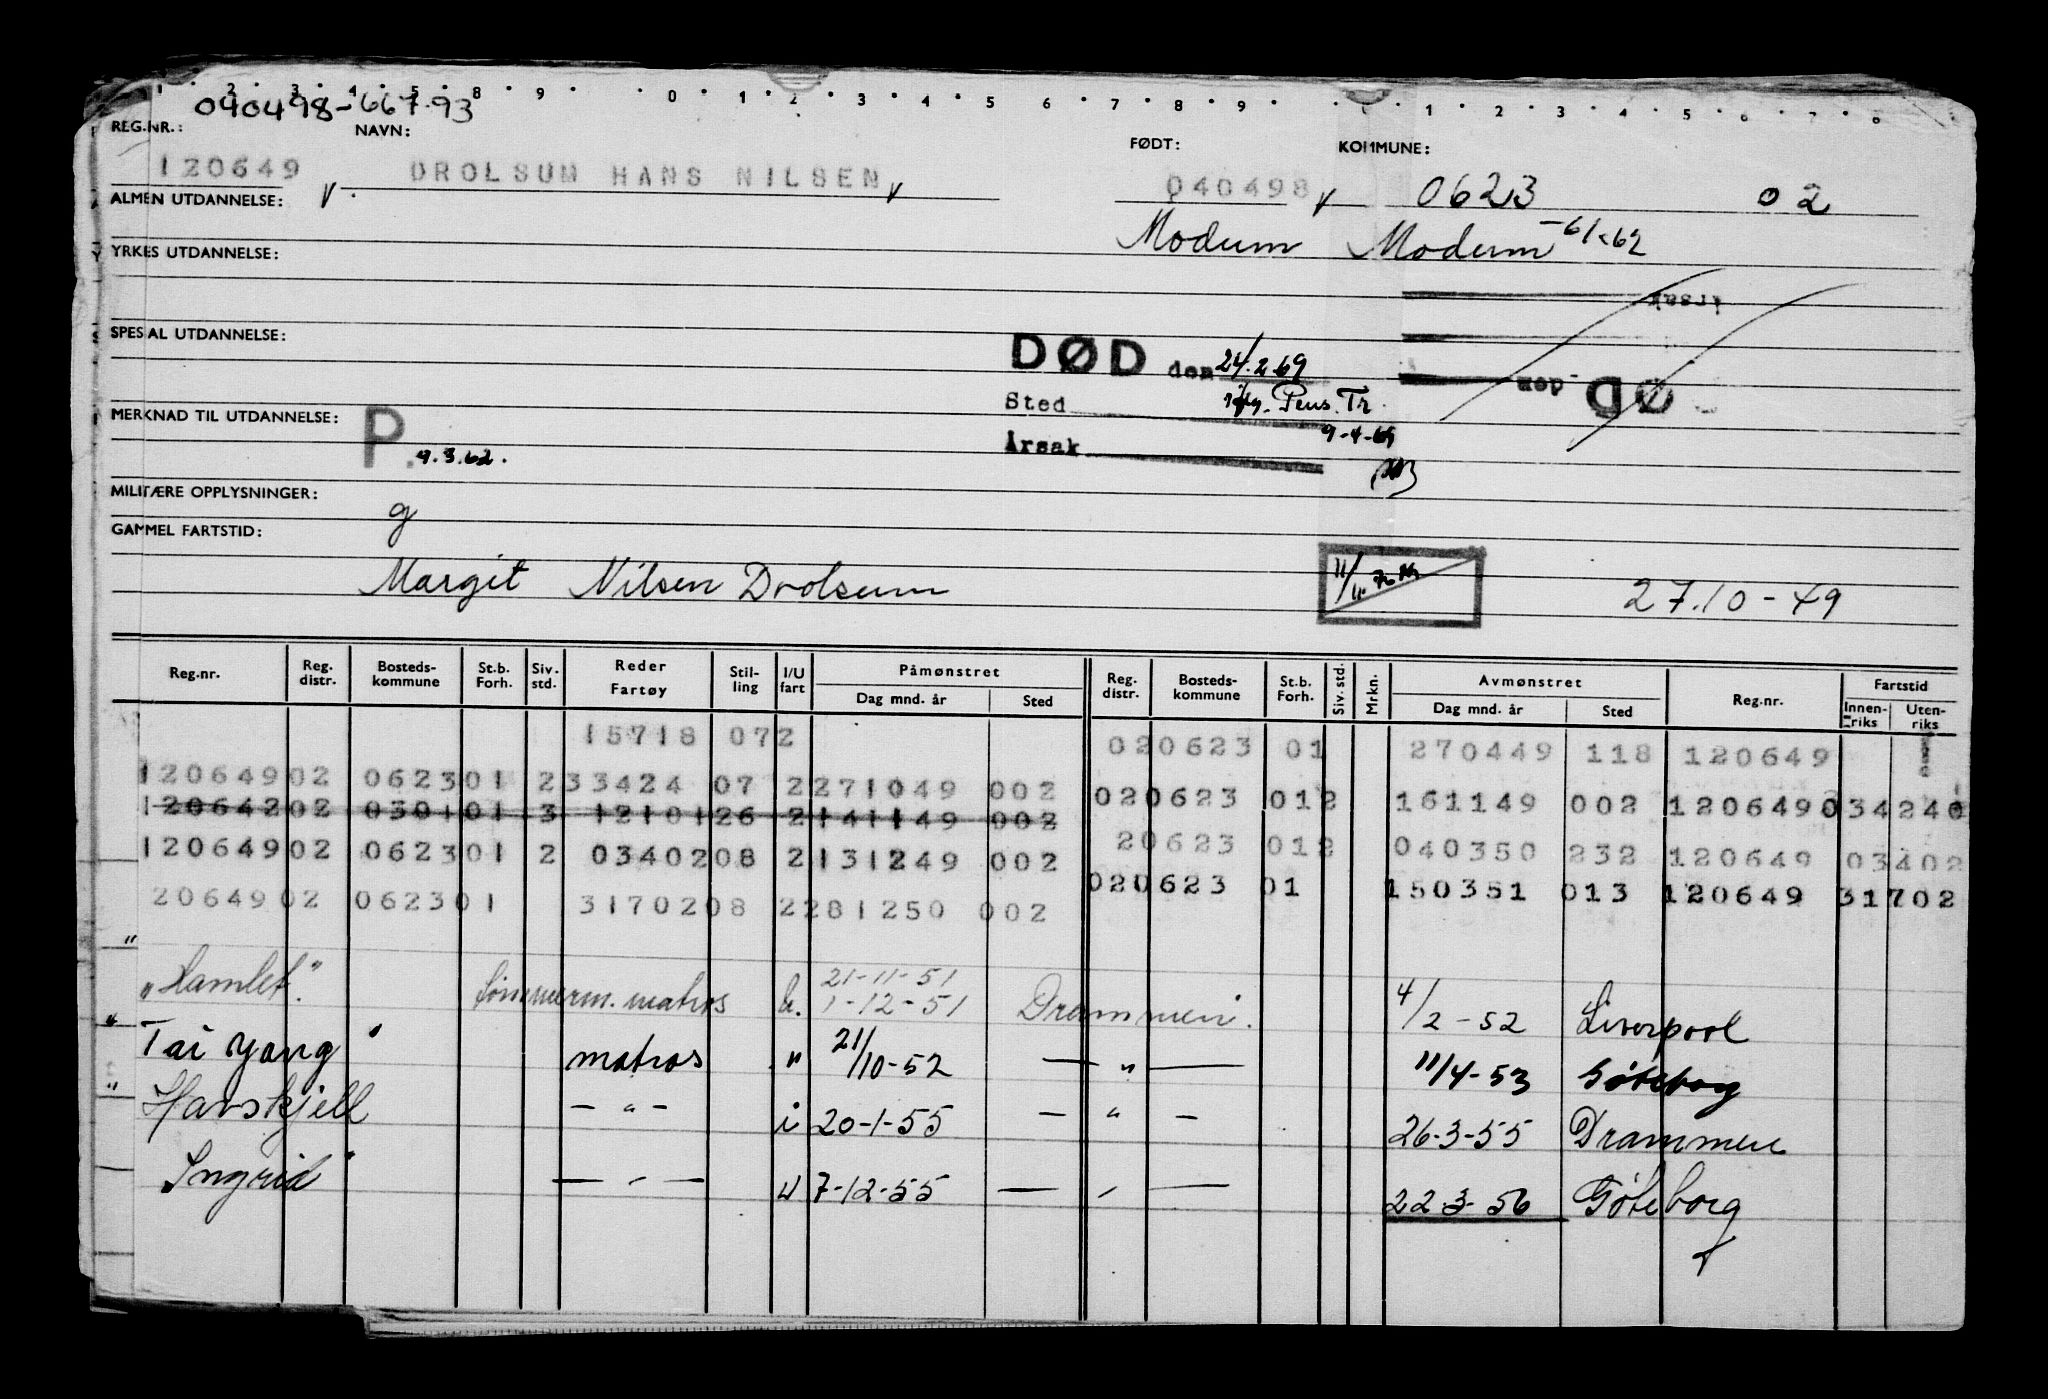 1 2 3 4 5 8 9 0 1 2 3 4 5 6 7 8 9 1 2 3 4 5 6 7 8
090498-66793
REG.NR.: NAVN: FØDT: KOMMUNE:
120649 DROLSUM HANS NILSEN 040498 0623 02
ALMEN UTDANNELSE:
Modum Modum -61-62
YRKES UTDANNELSE:
SPESIAL UTDANNELSE:
DØD den 24/2.69
Sted Pens. Tr.
MERKNAD TIL UTDANNELSE: P. 9.3.62.
9-4-69
Årsak
MILITÆRE OPPLYSNINGER:
g
GAMMEL FARTSTID:
Margit Nilsen Drolsum 27.10-49
Reg.nr. Reg. distr. Bosteds-kommune St.b. Forh. Siv. std. Reder Fartøy Stil-ling I/U fart Påmønstret Dag mnd. år Sted Reg. distr. Bosteds-kommune St.b. Forh. Siv. std. Mrkn. Avmønstret Dag mnd. år Sted Reg.nr. Fartstid Innen-riks Uten-riks
15718 072 020623 01 270449 118 120649
12064902 062301 233424 07 2271049 002 020623 012 161149 002 120649034240
12064202 030101 3 1210126 2141149 002
12064902 062301 2 0340208 2131249 002 20623 012 040350 232 120649 03402
2064902 062301 3170208 2281250 002 020623 01 150351 013 120649 31702
"Hamlet" tømmerm. matros u. 21-11-51 1-12-51 Drammen. 4/2-52 Liverpool
"Tai Yang" matros " 21/10-52 — " — 11/4-53 Gøteborg
"Havskjell — " — i 20-1-55 — " — 26-3-55 Drammen
Ingrid" — " — u 7-12-55 — " — 22-3-56 Gøteborg